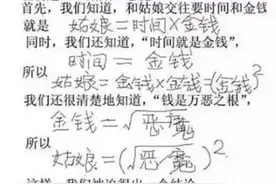 首先，我们知道，和姑娘交往要时间和金钱
就是 姑娘=时间×金钱
同时，我们还知道，“时间就是金钱”，
时间 = 金钱
所以
姑娘=金钱×金钱=(金钱)²
我们还很清楚地知道，“钱是万恶之根”，
金钱=√恶魔
所以
姑娘=(√恶魔)²